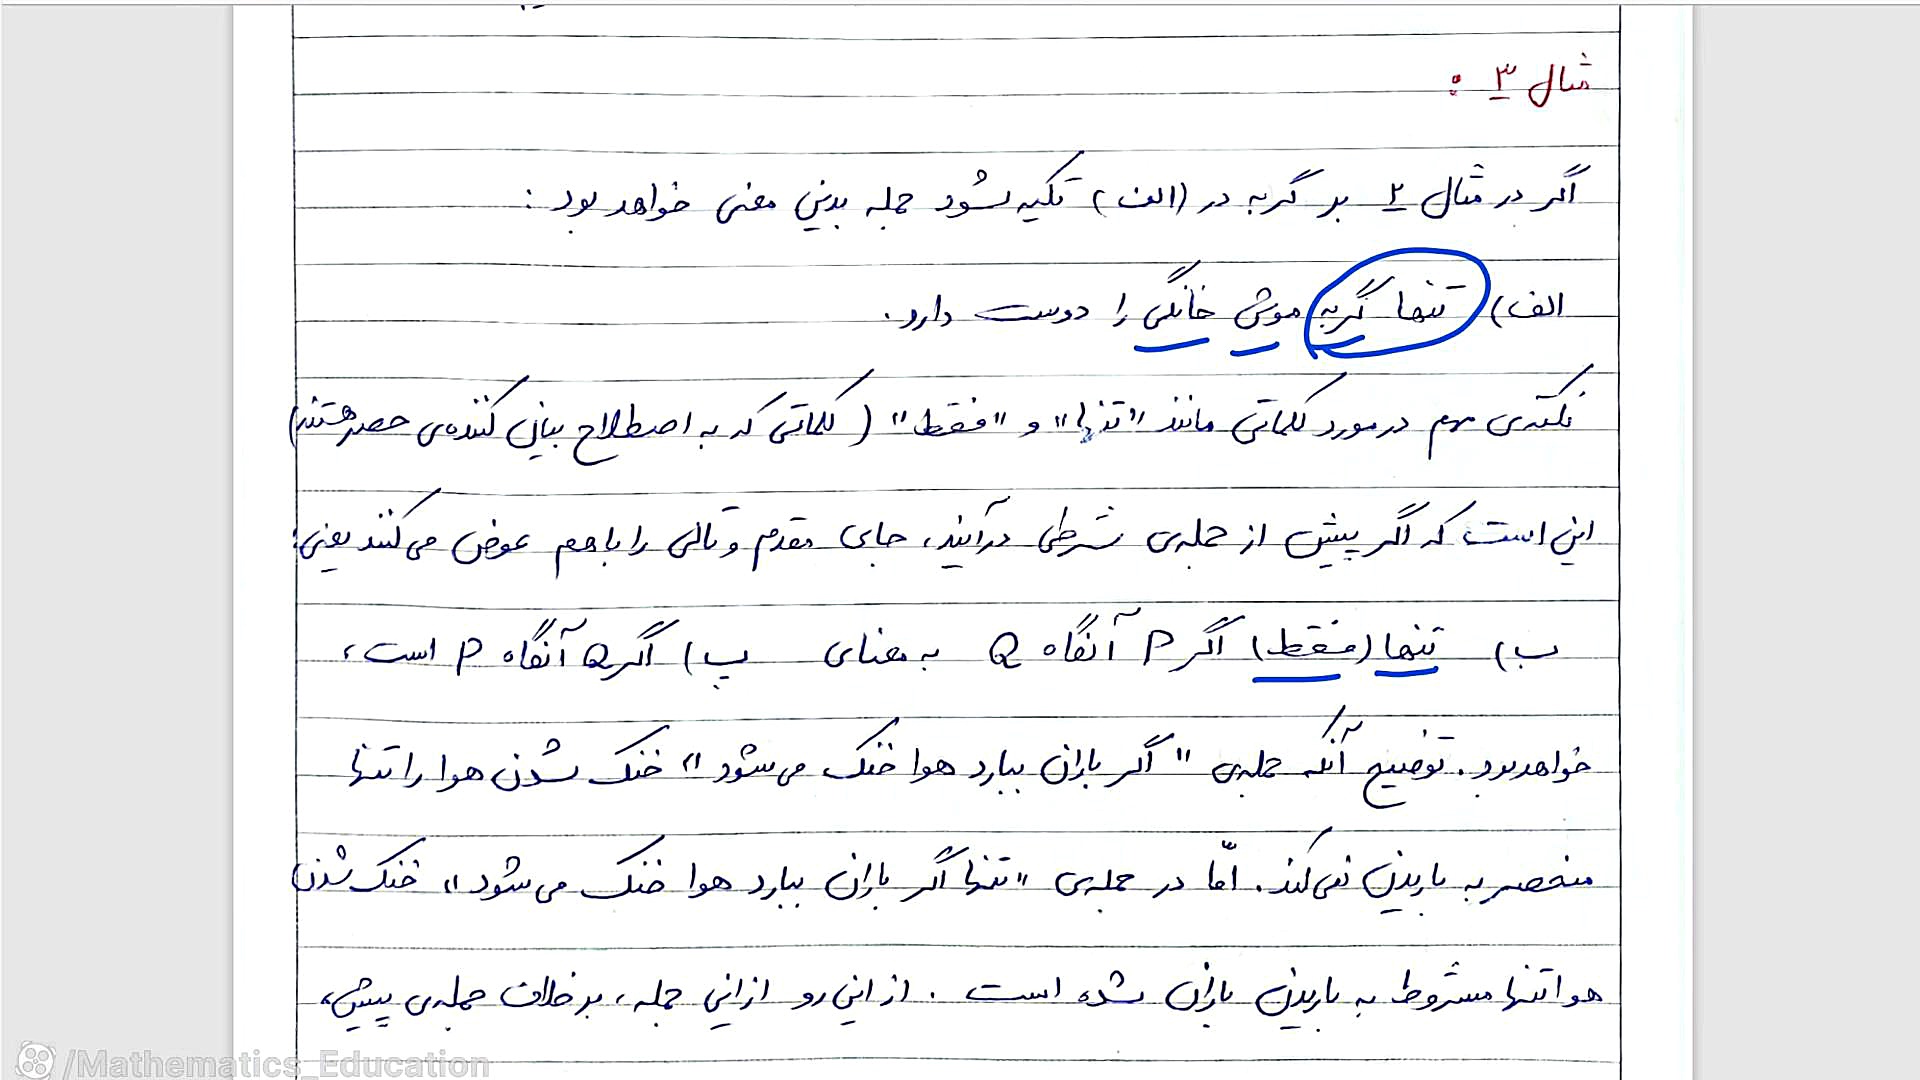 مثال ۳ :
اگر در مثال ۲ بر گربه در (الف) تکیه شود جمله بدین معنی خواهد بود :
الف) تنها گربه موش خانگی را دوست دارد.
نکته‌ی مهم در مورد کلماتی مانند "تنها" و "فقط" (کلماتی که به اصطلاح بیان کننده‌ی حصر هستند)
این است که اگر پیش از جمله‌ی شرطی درآیند، جای مقدم و تالی را باهم عوض می‌کنند یعنی:
ب) تنها (فقط) اگر P آنگاه Q به معنای پ) اگر Q آنگاه P است،
خواهد بود. توضیح آنکه جمله‌ی "اگر باران ببارد هوا خنک می‌شود" خنک شدن هوا را تنها
منحصر به باریدن نمی‌کند. امّا در جمله‌ی "تنها اگر باران ببارد هوا خنک می‌شود"، خنک شدن
هوا تنها مشروط به باریدن باران شده است . از این رو از این جمله، بر خلاف جمله‌ی پیش،
/Mathematics_Education